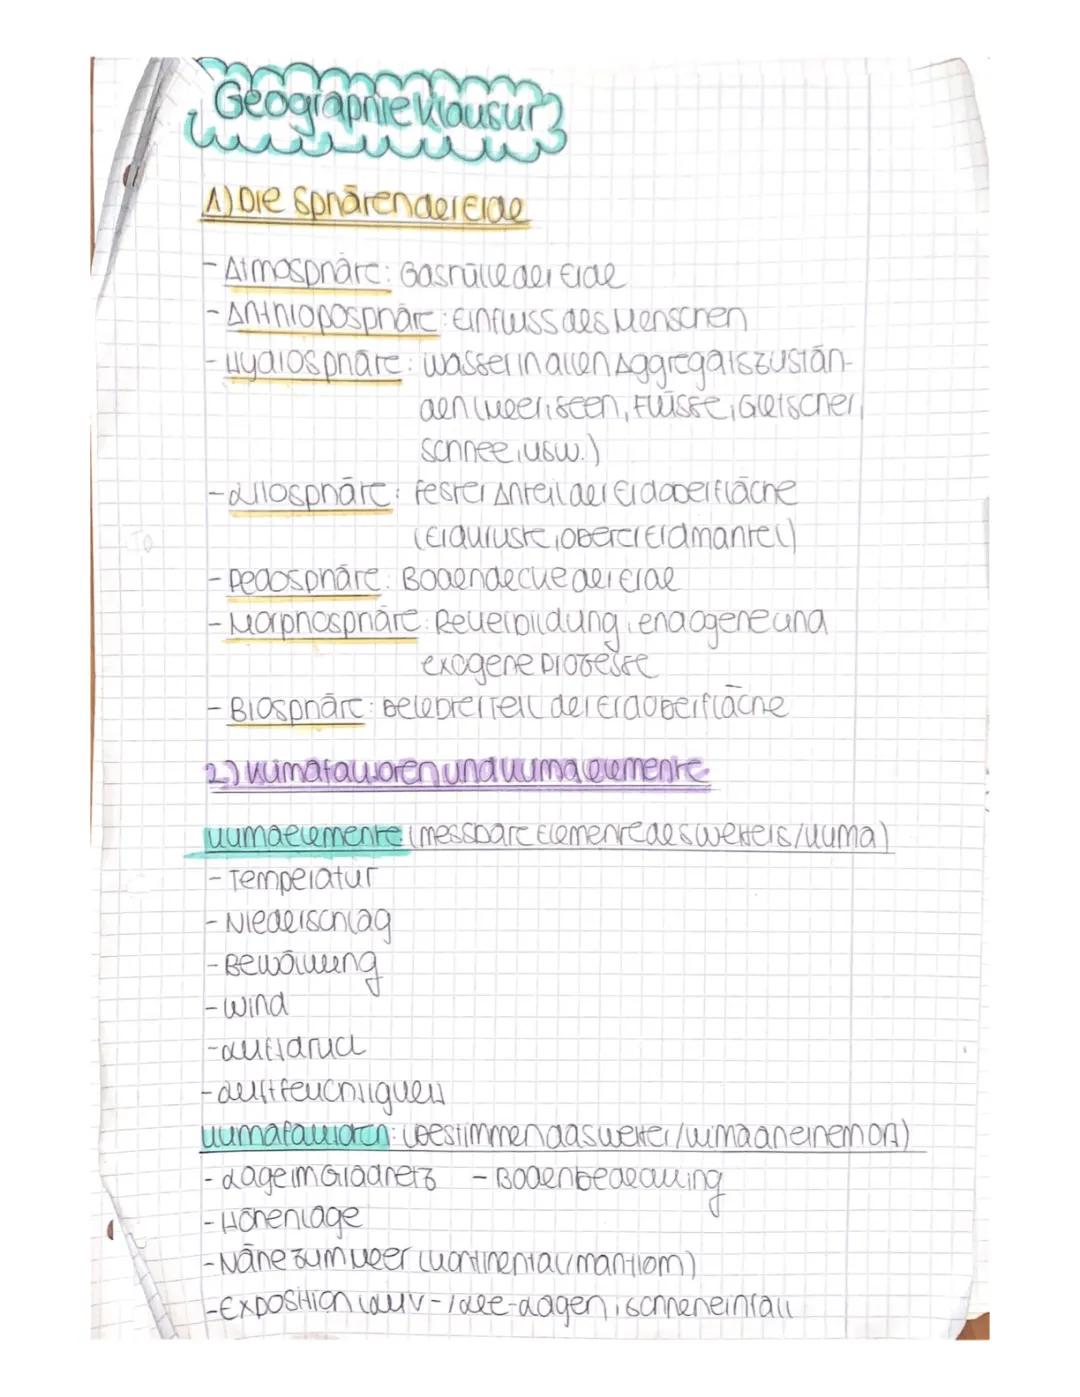 Geographie Klausur
1) Die Sphären der Erde
- Atmosphäre: Gashülle der Erde
- Anthroposphäre: Einfluss des Menschen
- Hydrosphäre: Wasser in allen Aggregatszustän-
den (Meer, Seen, Flüsse, Gletscher,
Schnee, usw.)
- Lithosphäre: fester Anteil der Erdoberfläche
(Erdkruste, oberer Erdmantel)
- Pedosphäre: Bodendecke der Erde
- Morphosphäre: Reliefbildung, endogene und
exogene Prozesse
- Biosphäre: belebter Teil der Erdoberfläche
2) Klimafaktoren und Klimaelemente
Klimaelemente: (messbare Elemente des Wetters/Klima)
- Temperatur
- Niederschlag
- Bewölkung
- Wind
- Luftdruck
- Luftfeuchtigkeit
Klimafaktoren: (bestimmen das Wetter/Klima an einem Ort)
- Lage im Gradnetz - Bodenbedeckung
- Höhenlage
- Nähe zum Meer (kontinental/maritim)
- Exposition (Luv-/Lee-Lagen, Sonneneinfall